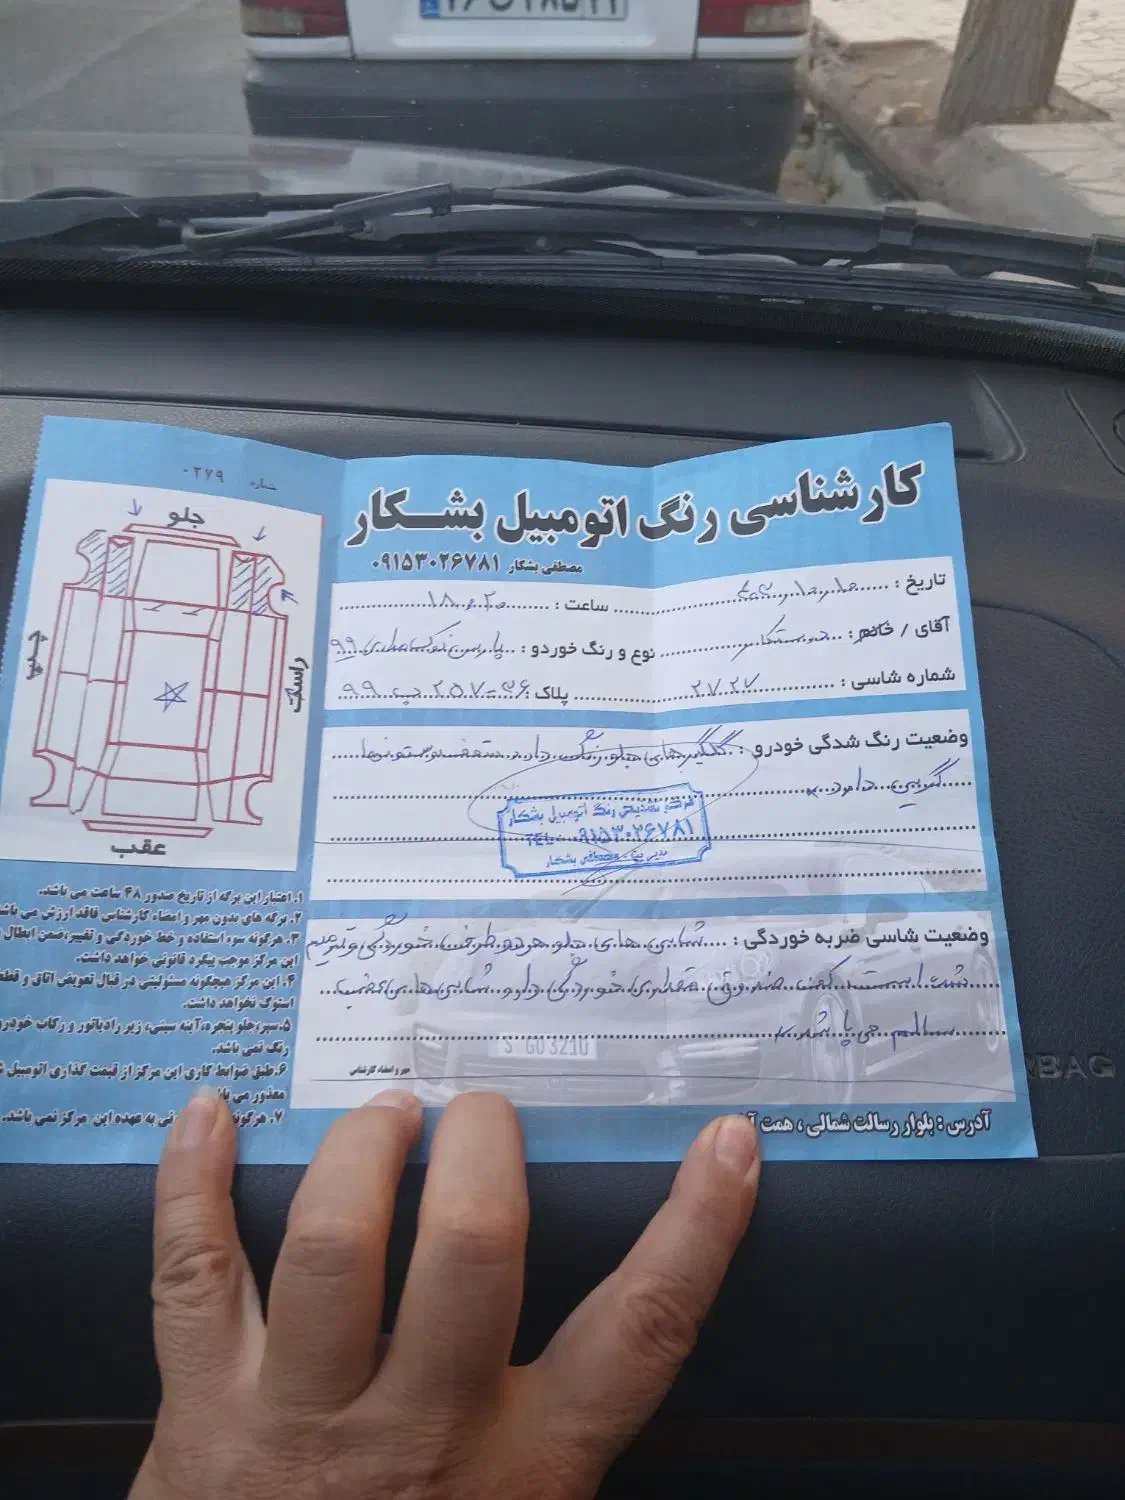 شماره ۰۲۷۹
کارشناسی رنگ اتومبیل بشکار
مصطفی بشکار ۰۹۱۵۳۰۲۶۷۸۱
تاریخ :
ساعت : ۱۸ و ۲۰
آقای / خانم :
نوع و رنگ خوردو : پارس نوک مدادی ۹۹
شماره شاسی : ۲۷۲۷
پلاک : ۳۶-۲۵۷ ب ۹۹
وضعیت رنگ شدگی خودرو : گلگیر های جلو رنگ دارد سقف و ستونها
دارد
مرکز تشخیص رنگ اتومبیل بشکار
۰۹۱۵۳۰۲۶۷۸۱
مدیریت : مصطفی بشکار
وضعیت شاسی ضربه خوردگی : شاسی های جلو هر دو طرف خوردگی و ترمیم
شده است کف صندوق مقداری خوردگی دارد شاسی های عقب
سالم می باشد
مهر و امضاء کارشناسی
آدرس : بلوار رسالت شمالی ، همت
جلو
چپ
راست
عقب
۱. اعتبار این برگه از تاریخ صدور ۴۸ ساعت می باشد.
۲. برگه های بدون مهر و امضاء کارشناسی فاقد ارزش می باشد
۳. هرگونه سوء استفاده و خط خوردگی و تغییر، ضمن ابطال
این مرکز موجب پیگرد قانونی خواهد داشت.
۴. این مرکز هیچگونه مسئولیتی در قبال تعویض اتاق و قطع
استوک نخواهد داشت.
۵. سپر، جلو پنجره، آینه سینی، زیر رادیاتور و رکاب خودرو
رنگ نمی باشد.
۶. طبق ضوابط کاری این مرکز از قیمت گذاری اتومبیل
معذور می
۷. هرگونه به عهده این مرکز نمی باشد.
S GO 3210
BAG